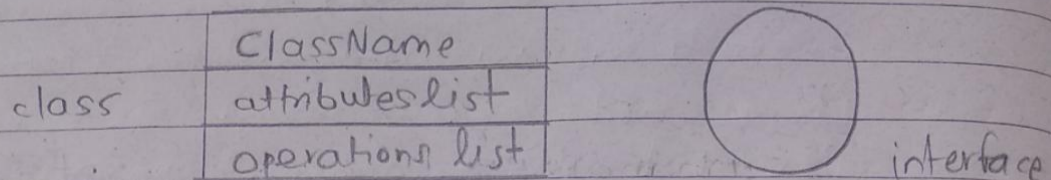 ClassName
class attributes list
operations list interface